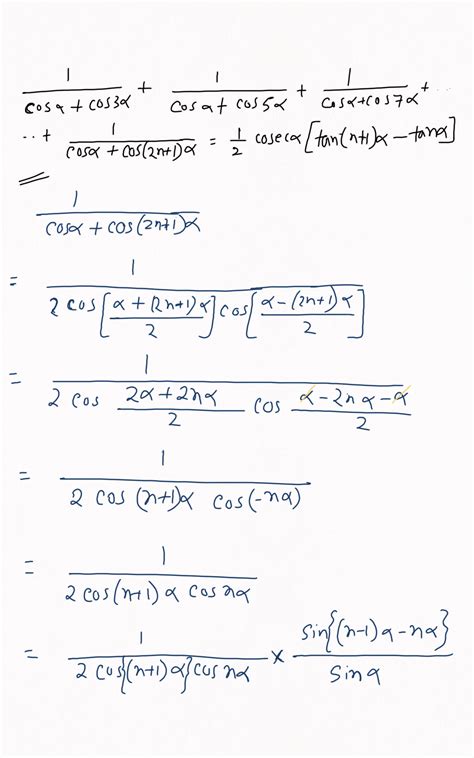 1/(cosα + cos3α) + 1/(cosα + cos5α) + 1/(cosα+cos7α) + ..
..+ 1/(cosα + cos(2n+1)α) = 1/2 cosecα [tan(n+1)α - tanα]
1/(cosα + cos(2n+1)α)
= 1/(2 cos[(α + (2n+1)α)/2] cos[(α - (2n+1)α)/2])
= 1/(2 cos (2α + 2nα)/2 cos (α - 2nα - α)/2)
= 1/(2 cos (n+1)α cos(-nα))
= 1/(2 cos(n+1)α cos nα)
= 1/(2 cos{(n+1)α} cos nα) × sin{(n-1)α - nα}/sinα